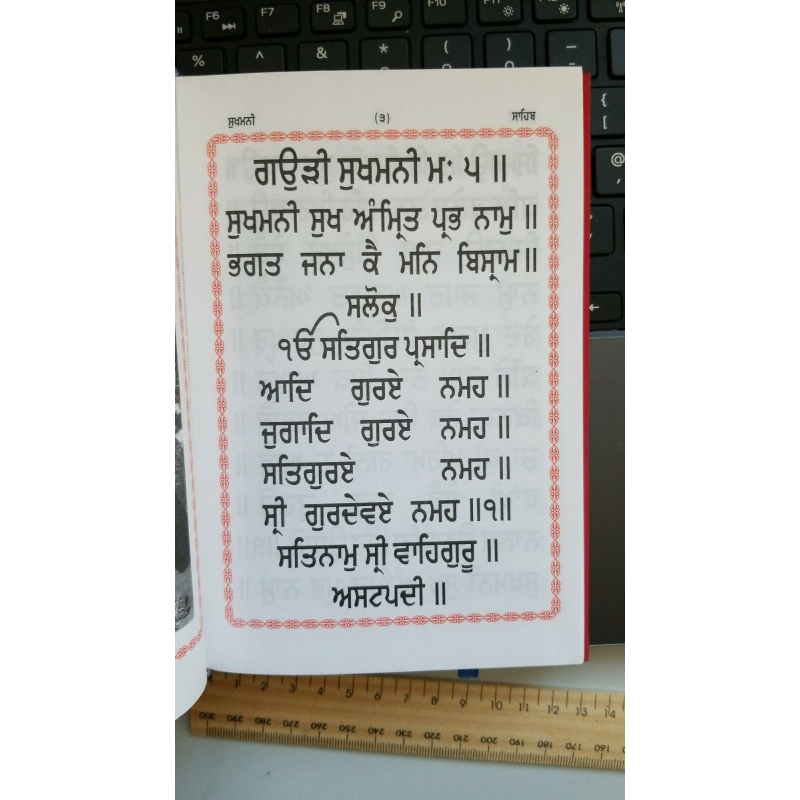 F6 F7 F8 F9 F10 F11
% ^ & * ( )
{
[
@
ਸੁਖਮਨੀ (੩) ਸਾਹਿਬ
ਗਉੜੀ ਸੁਖਮਨੀ ਮਃ ੫ ॥
ਸੁਖਮਨੀ ਸੁਖ ਅੰਮ੍ਰਿਤ ਪ੍ਰਭ ਨਾਮੁ ॥
ਭਗਤ ਜਨਾ ਕੈ ਮਨਿ ਬਿਸ੍ਰਾਮ॥
ਸਲੋਕੁ ॥
ੴ ਸਤਿਗੁਰ ਪ੍ਰਸਾਦਿ ॥
ਆਦਿ ਗੁਰਏ ਨਮਹ ॥
ਜੁਗਾਦਿ ਗੁਰਏ ਨਮਹ ॥
ਸਤਿਗੁਰਏ ਨਮਹ ॥
ਸ੍ਰੀ ਗੁਰਦੇਵਏ ਨਮਹ ॥੧॥
ਸਤਿਨਾਮੁ ਸ੍ਰੀ ਵਾਹਿਗੁਰੂ ॥
ਅਸਟਪਦੀ ॥
1 2 3 4 5 6 7 8 9 10 11 12 13 14
300 290 280 270 260 250 240 230 220 210 200 190 180 170 160